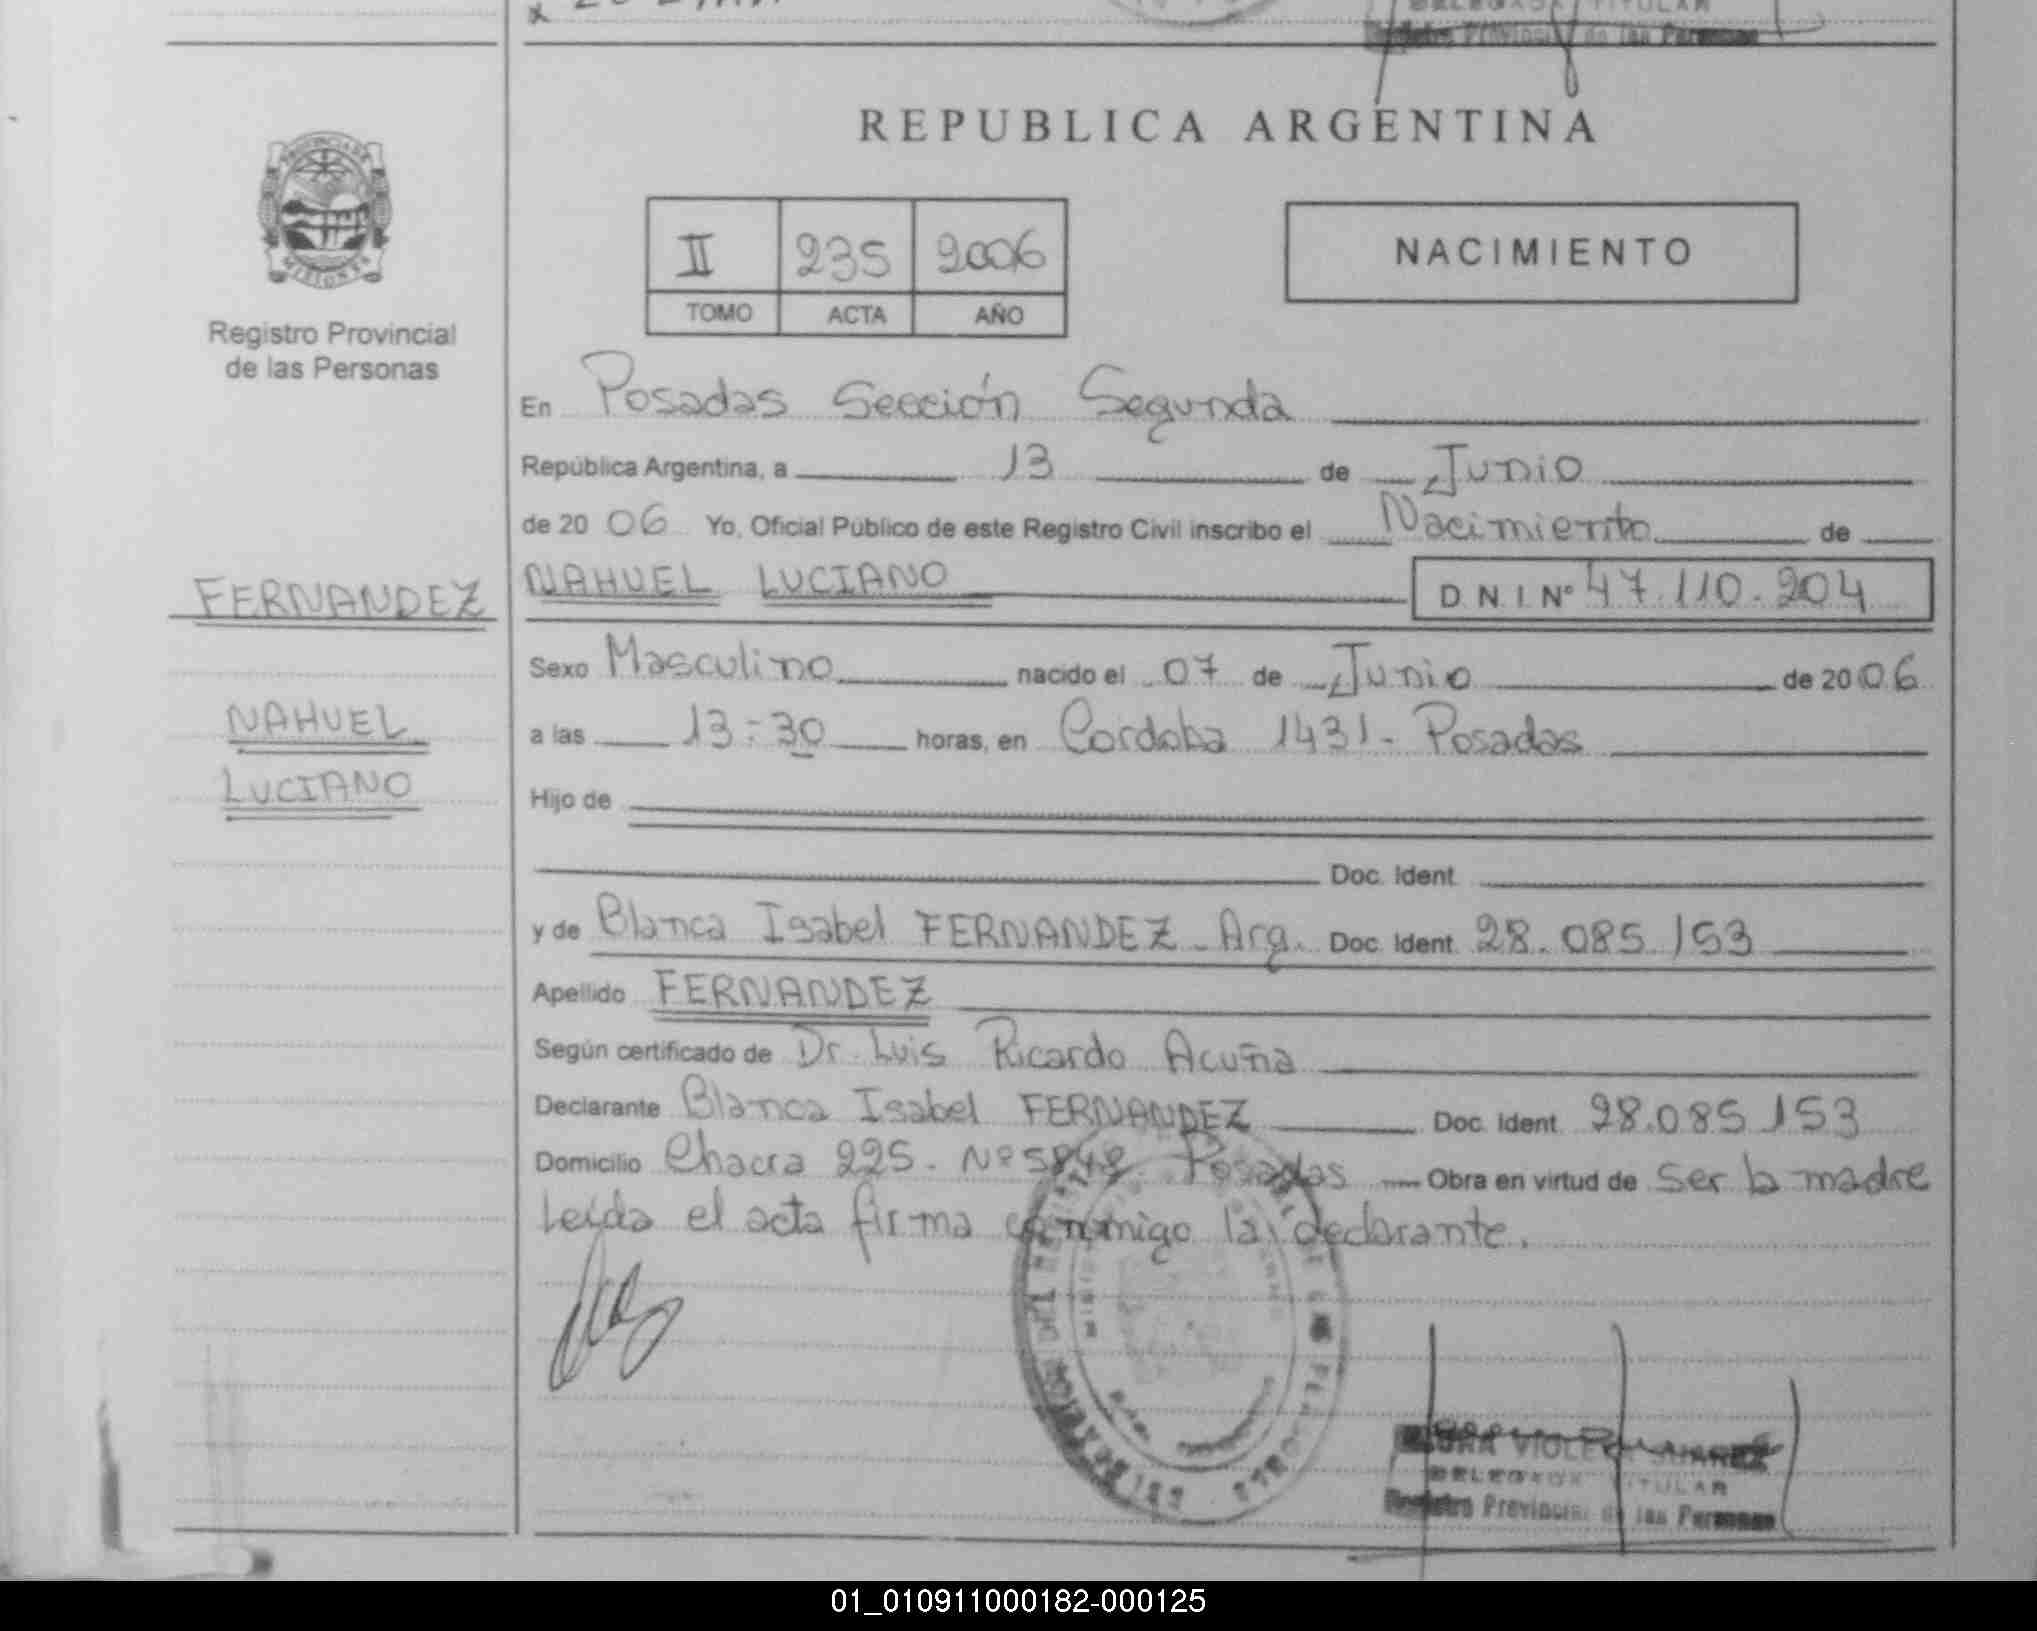 DELEGADA TITULAR
Registro Provincial de las Personas
REPUBLICA ARGENTINA
PROVINCIA DE
MISIONES
Registro Provincial
de las Personas
II 235 2006
TOMO ACTA AÑO
NACIMIENTO
En Posadas Sección Segunda
República Argentina, a 13 de Junio
de 2006 Yo, Oficial Público de este Registro Civil inscribo el Nacimiento de
FERNANDEZ
NAHUEL LUCIANO D.N.I. Nº 47.110.204
Sexo Masculino nacido el 07 de Junio de 2006
NAHUEL
LUCIANO
a las 13:30 horas, en Cordoba 1431 - Posadas
Hijo de
Doc. Ident.
y de Blanca Isabel FERNANDEZ - Arg. Doc. Ident. 28.085.153
Apellido FERNANDEZ
Según certificado de Dr. Luis Ricardo Acuña
Declarante Blanca Isabel FERNANDEZ Doc. Ident. 28.085.153
Domicilio Chacra 225. Nº 5848 Posadas Obra en virtud de Ser la madre
Leída el acta firma conmigo la declarante.
VIOLETA JUAREZ
DELEGADA TITULAR
Registro Provincial de las Personas
01_010911000182-000125